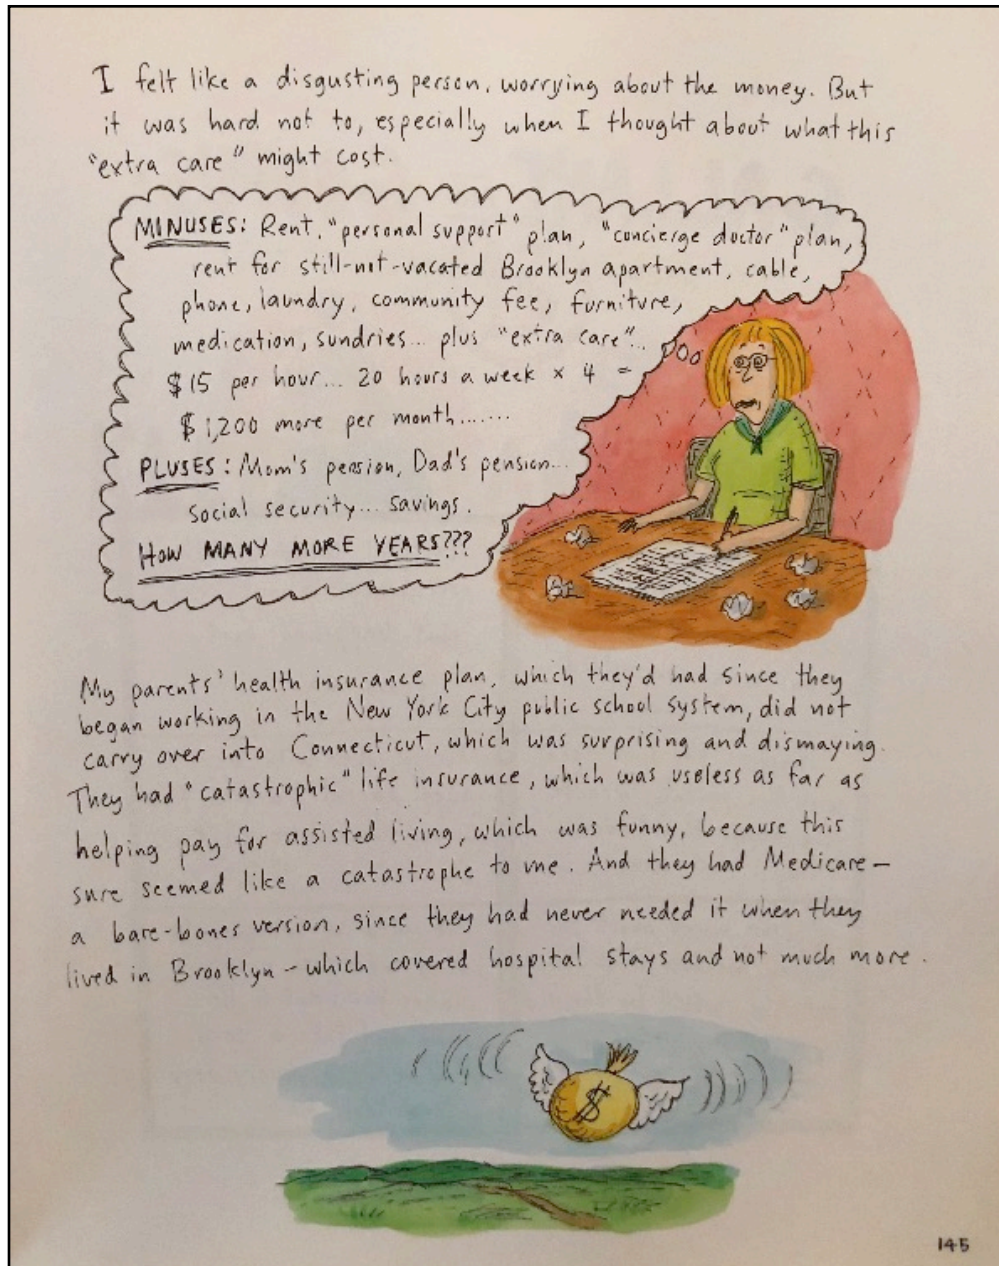 I felt like a disgusting person, worrying about the money. But
it was hard not to, especially when I thought about what this
"extra care" might cost.
MINUSES: Rent, "personal support" plan, "concierge doctor" plan,
rent for still-not-vacated Brooklyn apartment, cable,
phone, laundry, community fee, furniture,
medication, sundries... plus "extra care"...
$15 per hour... 20 hours a week × 4 =
$1,200 more per month.......
PLUSES: Mom's pension, Dad's pension...
social security... savings.
HOW MANY MORE YEARS???
My parents' health insurance plan, which they'd had since they
began working in the New York City public school system, did not
carry over into Connecticut, which was surprising and dismaying.
They had "catastrophic" life insurance, which was useless as far as
helping pay for assisted living, which was funny, because this
sure seemed like a catastrophe to me. And they had Medicare—
a bare-bones version, since they had never needed it when they
lived in Brooklyn—which covered hospital stays and not much more.
$
145